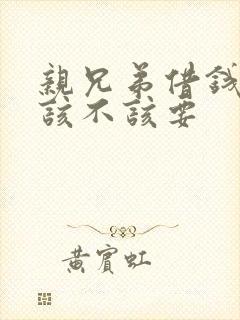 親兄弟借錢
該不該要
黃賓虹